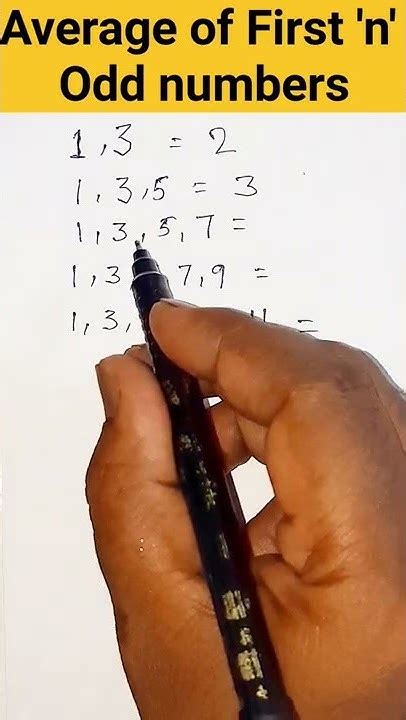 Average of First 'n'
Odd numbers
1,3 = 2
1,3,5 = 3
1,3,5,7 =
1,3 7,9 =
1,3, 11 =